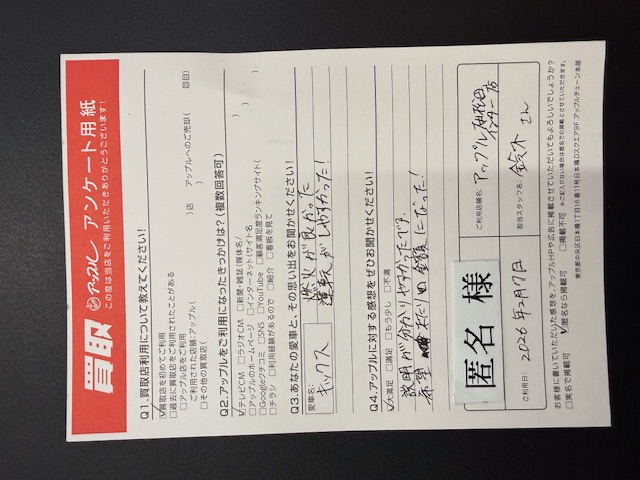 買取 アップル アンケート用紙
この度は当店をご利用いただきありがとうございます!
Q1.買取店利用について教えてください!
☑買取店を初めてご利用
□過去に買取店をご利用されたことがある
□アップル店をご利用
ご利用された店舗:アップル( )店 アップルへのご売却( 回目)
□その他の買取店( )
Q2.アップルをご利用になったきっかけは?(複数回答可)
☑テレビCM □ラジオCM □新聞・雑誌(媒体名/ )
□アップルのホームページ □インターネット(サイト名 )
□Googleクチコミ □SNS □YouTube □顧客満足度ランキングサイト( )
□チラシ □利用経験があるので □紹介 □看板を見て
Q3.あなたの愛車と、その思い出をお聞かせください!
愛車名: キックス
燃火が良かった
運転がしやすかった!
Q4.アップルに対する感想をぜひお聞かせください!
☑大満足 □満足 □もう少し □不満
説明が分かりやすかったです。
希望 通り 金額になった!
匿名 様
ご利用店舗名: アップル
インター店
ご利用日: 2026年2月7日
担当スタッフ名: 鈴木 さん
お客様に書いていただいた感想を、アップルHPや広告に掲載させていただいてもよろしいでしょうか?
□実名で掲載可 ☑匿名なら掲載可 □掲載不可 ※ご記入がない場合は匿名での掲載とさせていただきます。
東京都中央区日本橋1丁目16番11号日本橋Dスクエア9F アップルチェーン本部